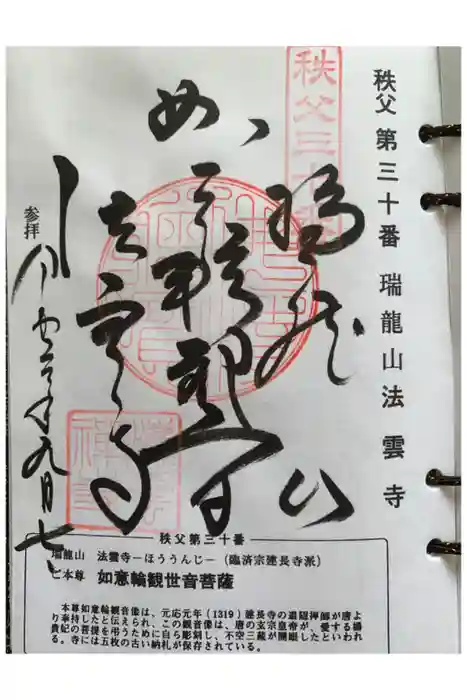 秩父 第三十番 瑞龍山 法雲寺
秩父三十番
瑞龍山
如意輪観音
法雲寺
参拝
秩父第三十番
瑞龍山 法雲寺－ほううんじ－（臨済宗建長寺派）
ご本尊 如意輪観世音菩薩
本尊如意輪観音像は、元応元年(1319)建長寺の道隠禅師が唐よ
り奉持したと伝えられ、この観音像は、唐の玄宗皇帝が、愛する楊
貴妃の菩提を弔うために自ら彫刻し、不空三蔵が開眼したといわれ
る。寺には五枚の古い納札が保存されている。